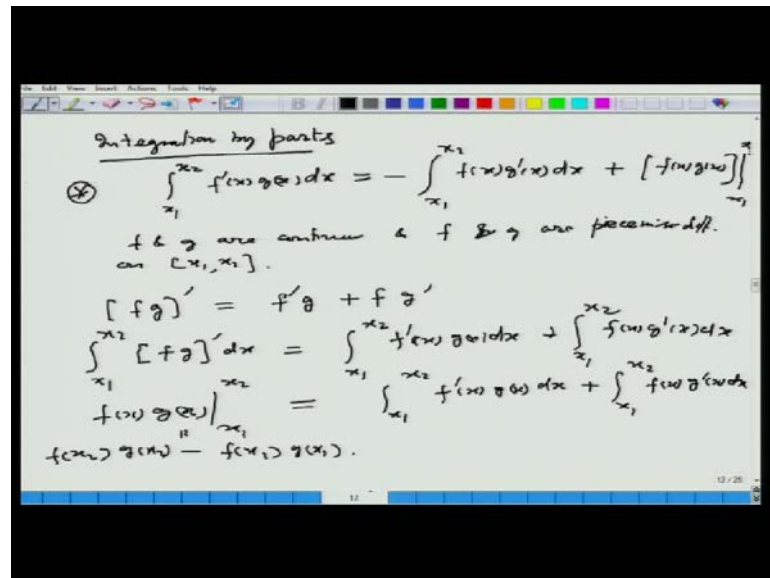 Edit View Insert Actions Tools Help
Integration by parts
(*) ∫_{x₁}^{x₂} f'(x) g(x) dx = - ∫_{x₁}^{x₂} f(x) g'(x) dx + [f(x) g(x)]|_{x₁}
f & g are continuous & f & g are piecewise diff.
on [x₁, x₂].
[fg]' = f'g + f g'
∫_{x₁}^{x₂} [fg]' dx = ∫_{x₁}^{x₂} f'(x) g(x) dx + ∫_{x₁}^{x₂} f(x) g'(x) dx
f(x) g(x)|_{x₁}^{x₂} = ∫_{x₁}^{x₂} f'(x) g(x) dx + ∫_{x₁}^{x₂} f(x) g'(x) dx
f(x₂) g(x₂) - f(x₁) g(x₁).
12 / 25
12